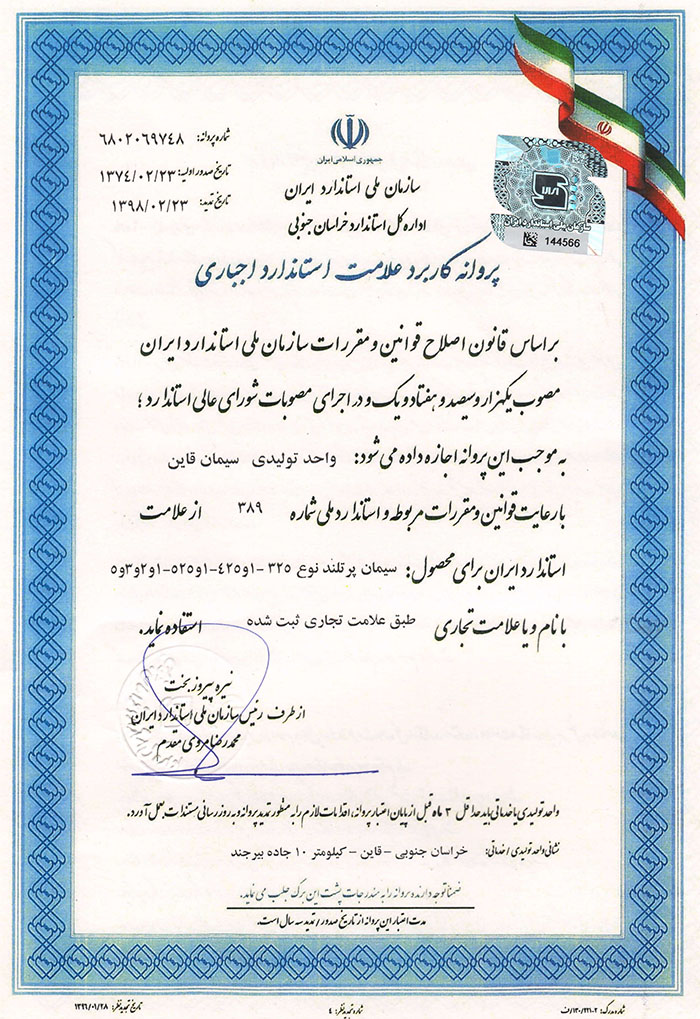 جمهوری اسلامی ایران
سازمان ملی استاندارد ایران
اداره کل استاندارد خراسان جنوبی
شماره پروانه: ۶۸۰۲۰۶۹۷۴۸
تاریخ صدور اولیه: ۱۳۷۴/۰۲/۲۳
تاریخ تمدید: ۱۳۹۸/۰۲/۲۳
سازمان ملی استاندارد ایران
144566
پروانه کاربرد علامت استاندارد اجباری
بر اساس قانون اصلاح قوانین و مقررات سازمان ملی استاندارد ایران
مصوب یکهزار و سیصد و هفتاد و یک و در اجرای مصوبات شورای عالی استاندارد ؛
به موجب این پروانه اجازه داده می شود: واحد تولیدی سیمان قاین
با رعایت قوانین و مقررات مربوطه و استاندارد ملی شماره ۳۸۹ از علامت
استاندارد ایران برای محصول: سیمان پرتلند نوع ۳۲۵-۱و۴۲۵-۱و۵۲۵-۱و۲و۳و۵
با نام و یا علامت تجاری طبق علامت تجاری ثبت شده استفاده نماید.
نیره پیروزبخت
از طرف رئیس سازمان ملی استاندارد ایران
محمدرضا مروی مقدم
واحد تولیدی یا خدماتی باید حداقل ۳ ماه قبل از پایان اعتبار پروانه، اقدامات لازم را به منظور تمدید پروانه و به روز رسانی مستندات بعمل آورد.
نشانی واحد تولیدی / خدماتی: خراسان جنوبی - قاین - کیلومتر ۱۰ جاده بیرجند
ضمنا توجه دارنده پروانه را به مندرجات پشت این برگ جلب می نماید.
مدت اعتبار این پروانه از تاریخ صدور / تمدید سه سال است.
شماره مدرک: ۲-۱۳۰/۲۲۱/ف
شماره تجدید نظر: ۴
تاریخ تجدید نظر: ۱۳۹۶/۰۱/۲۸